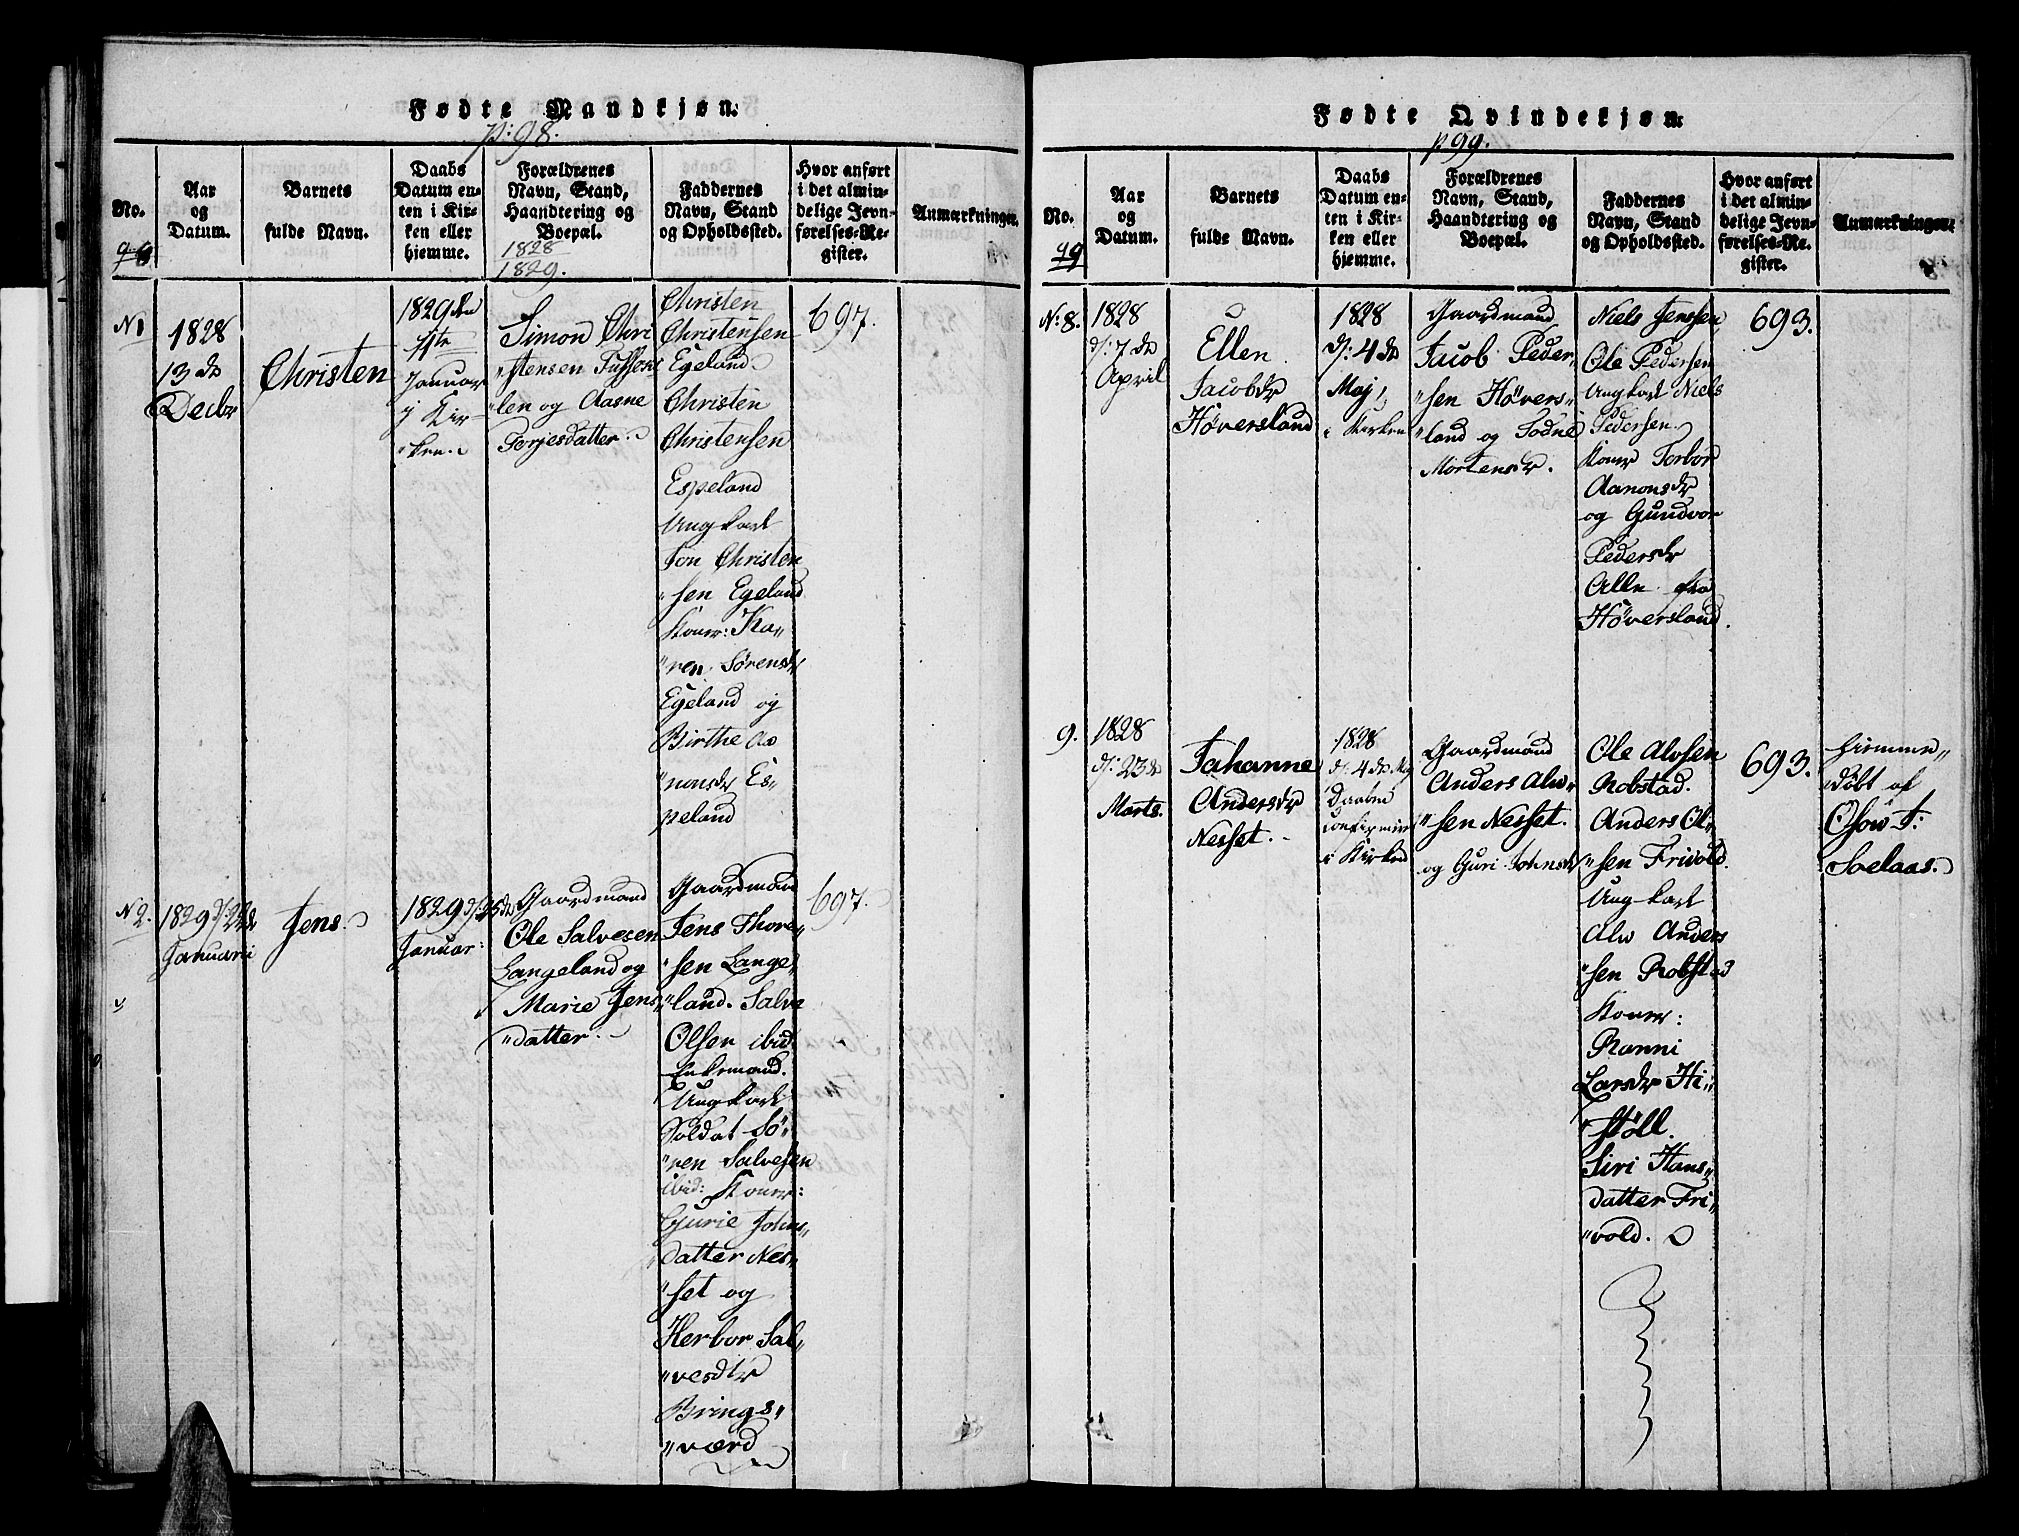 Fødte Mandkjøn.
p: 98.
No.
Aar
og
Datum.
Barnets
fulde Navn.
Daabs
Datum en-
ten i Kir-
ken eller
hjemme.
Forældrenes
Navn, Stand,
Haandtering og
Boepæl.
1828
1829.
Faddernes
Navn, Stand
og Opholdssted.
Hvor anført
i det almin-
delige Jevn-
førelses-Re-
gister.
Anmærkninger.
N1
1828
13 de
Decbr
Christen
1829 den
1ste
Januar
i Kir-
"ken.
Simon Chri
"stensen
"len og Aasne
Terjesdatter.
Christen
Christensen
Egeland
Christen
Christensen
Espeland
Ung karl
Jon Christen
"sen Egeland
Koner: Ka-
"ren Sørensdr
Egeland og
Birthe Aa
"nonsdr Es-
peland
697.
N2.
1829 d: 22de
Januarii
Jens
1829 d: 25de
Januar:
Gaardmand
Ole Salvesen
Langeland og
Marie Jens
"datter.
Gaardmand
Jens Thore-
"sen Lange-
"land. Salve
Olsen ibid:
Enkemand.
Ung karl
Soldat Sø-
"ren Salvesen
ibid: Koner:
Gurie Johns-
datter Nes-
"set og
Herbor Sal-
"vesdtr
Brings-
"værd
697.
Fødte Qvindekjøn.
p 99.
No.
99
Aar
og
Datum.
Barnets
fulde Navn.
Daabs
Datum en-
ten i Kir-
ken eller
hjemme.
Forældrenes
Navn, Stand,
Haandtering og
Boepæl.
Faddernes
Navn, Stand
og Opholdssted.
Hvor anført
i det almin-
delige Jevn-
førelses-Re-
gister.
Anmærkninger.
N: 8.
1828
d: 7 de
April
Ellen
Jacobdr
Høversland
1828
d: 4 de
Maj
i Kirken
Gaardmand
Jacob Peder-
"sen Høvers-
"land og Todne
Mortensdr.
Niels Jenssen
Ole Pedersen
Ungkarl Niels
Pedersen
Koner Torbor
Aanonsdr
og Gundvor
Pedersdr
Alle fra
Høversland.
693.
9.
1828
d: 23de
Marts.
Johanne
Andersdr
Nesset.
1828
d: 4 de Maj
Daaben
confirmert
i Kirken
Gaardmand
Anders Alw-
"sen Nesset.
og Guri Johnsdr
Ole Alvsen
Robstad.
Anders Ol-
"sen Frivold
Ung karl
Alw Anders
"sen Robstad
Koner:
Ranni
Larsdr Hi-
"støll.
Siri Hans-
datter Fri-
"vold.
693.
hiemme-
døbt af
T:
Soelaas.